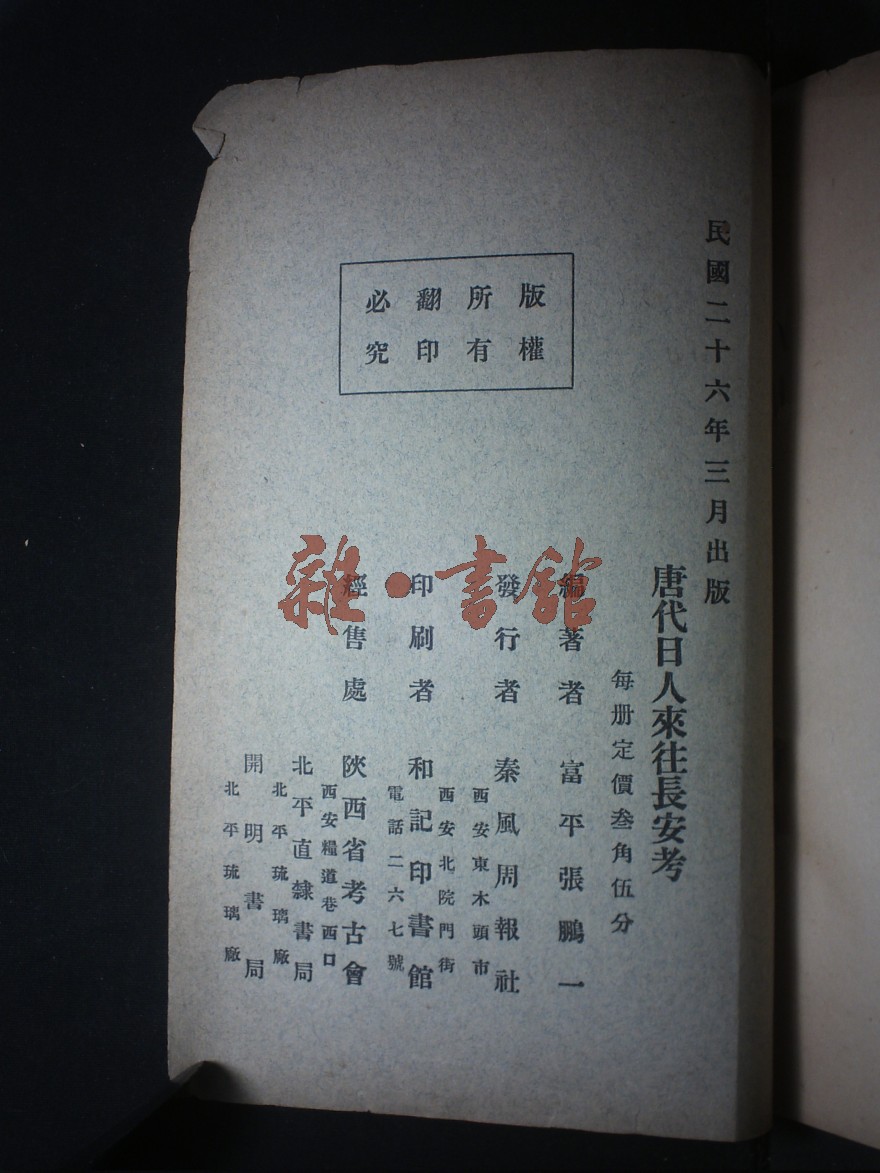 民國二十六年三月出版
唐代日人來往長安考
每册定價叁角伍分
編著者 富平張鵬一
發行者 秦風周報社
西安東木頭市
印刷者 和記印書館
西安北院門街
電話二六七號
經售處 陝西省考古會
西安糧道巷西口
北平直隸書局
北平琉璃廠
開明書局
北平琉璃廠
版權
所有
翻印
必究
雜·書館